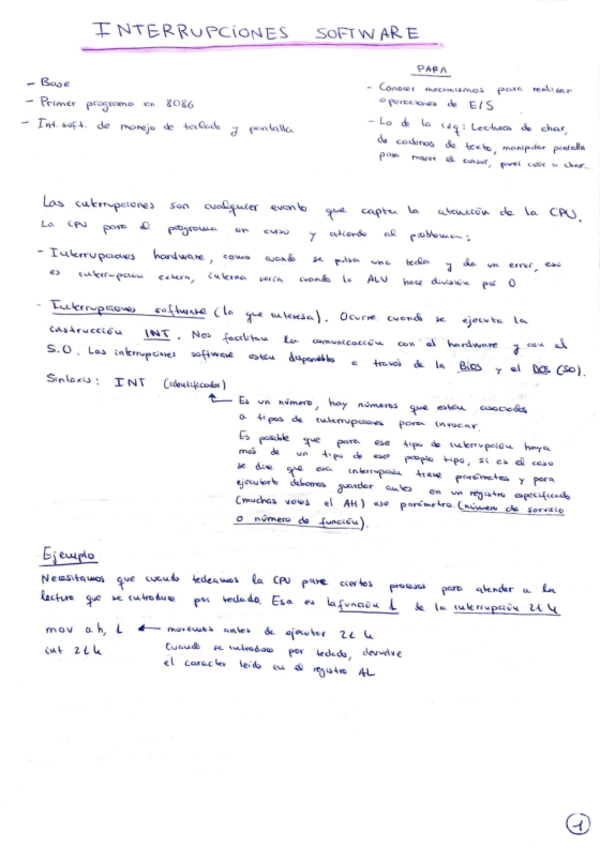 INTERRUPCIONES SOFTWARE
- Base
- Primer programa en 8086
- Int. soft. de manejo de teclado y pantalla
PARA
- Conocer mecanismos para realizar
operaciones de E/S
- Lo de la izq: Lecturas de char,
de cadenas de texto, manipular pantalla
para mover el cursor, poner color a char...
Las interrupciones son cualquier evento que capta la atención de la CPU.
La CPU para el programa en curso y atiende al problema:
- Interrupciones hardware, como cuando se pulsa una tecla y da un error, eso
es interrupción externa, interna sería cuando la ALU hace división por 0
- Interrupciones software (la que interesa). Ocurre cuando se ejecuta la
instrucción INT. Nos facilitan la comunicación con el hardware y con el
S.O. Las interrupciones software están disponibles a través de la Bios y el DOS (SO).
Sintaxis: INT (identificador)
Es un número, hay números que están asociados
a tipos de interrupciones para invocar.
Es posible que para ese tipo de interrupción haya
más de un tipo de ese propio tipo, si es el caso
se dice que esa interrupción tiene parámetros y para
ejecutarlo debemos guardar antes en un registro especificado
(muchas veces el AH) ese parámetro. (número de servicio
o número de función).
Ejemplo
Necesitamos que cuando tecleamos la CPU pare ciertos procesos para atender a la
lectura que se introduce por teclado. Esa es la función 1 de la interrupción 21h
mov ah, 1 ← movemos antes de ejecutar 21h
int 21h Cuando se introduce por teclado, devuelve
el caracter leído en el registro AL
1